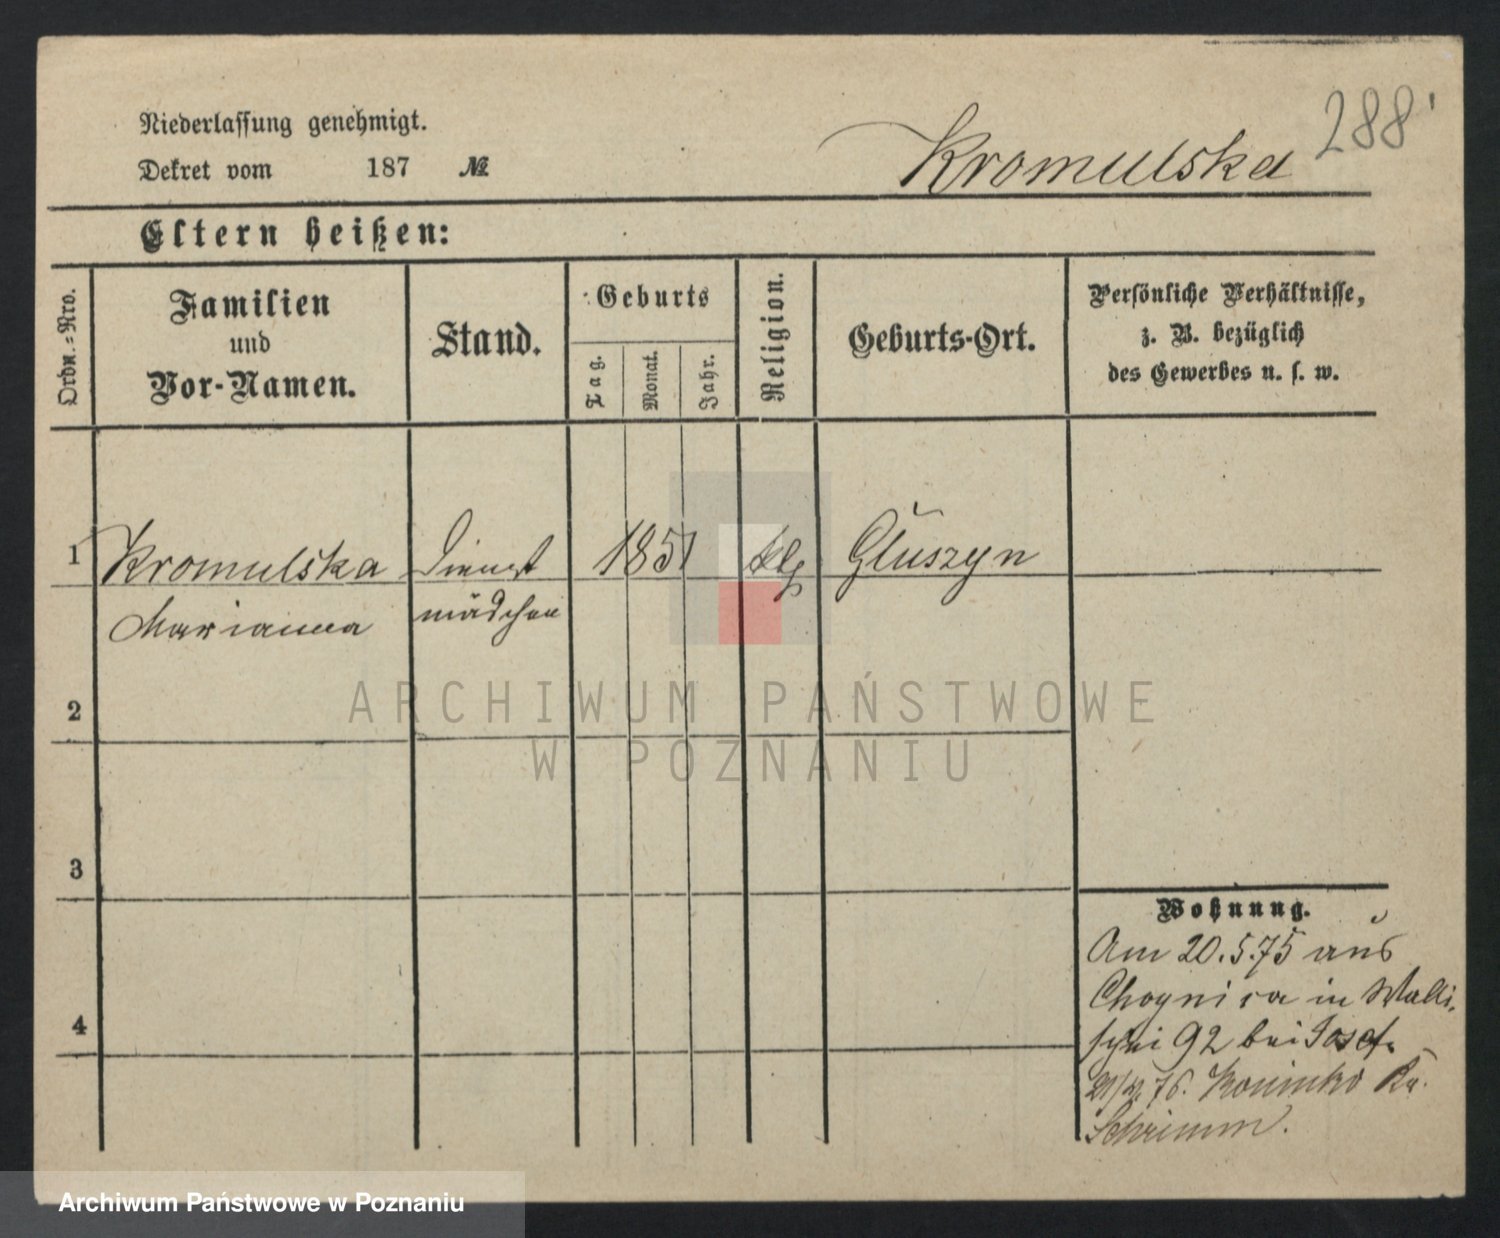 288
Niederlassung genehmigt.
Dekret vom 187 № Kromulska
Eltern heißen:
Ordn.=Nro.
Familien
und
Vor-Namen.
Stand.
Geburts
Tag.
Monat.
Jahr.
Religion.
Geburts-Ort.
Persönliche Verhältnisse,
z. B. bezüglich
des Gewerbes u. s. w.
1 Kromulska Dienst 1851 Głuszyn
Marianna mädchen
2
ARCHIWUM PAŃSTWOWE
W POZNANIU
3
4
Wohnung.
Am 20.5.75 aus
in Walli
92 bei Josef.
76. Koninko Kr.
Schrimm.
Archiwum Państwowe w Poznaniu